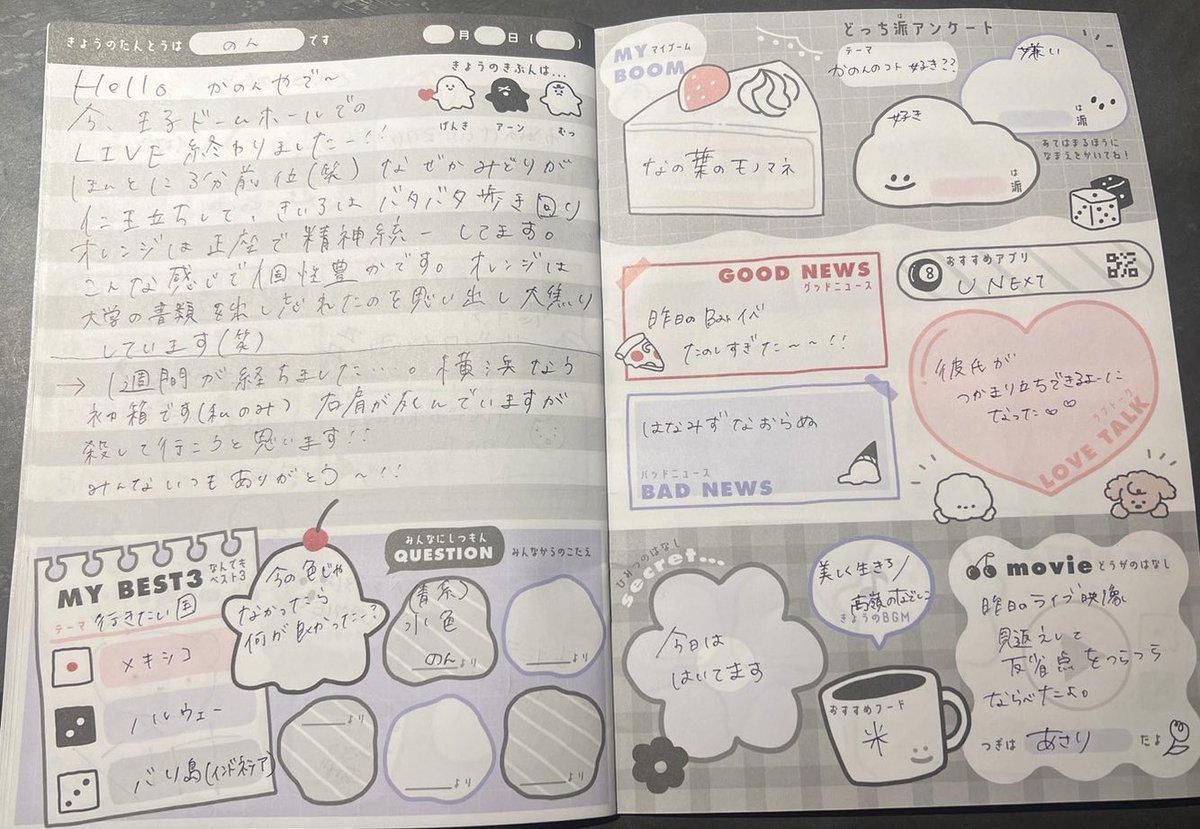 きょうのたんとうは のん です
月 日 ( )
きょうのきぶんは...
げんき アーン むっ
Hello かのんやで〜
今、王子ドームホールでの
LIVE 終わりましたー!!
ほんとに3分前位(笑) なぜかみどりが
仁王立ちして、きいろはバタバタ歩き回り
オレンジは正座で精神統一してます。
こんな感じで個性豊かです。オレンジは
大学の書類を出し忘れたのを思い出し大焦り
しています(笑)
→ 1週間が経ちました…。横浜なら
神箱です(私のみ) 右肩が死んでいますが
殺して行こうと思います!!
みんないつもありがとう〜!!
MY BEST3 なんでもベスト3
テーマ 行きたい国
メキシコ
ノルウェー
バリ島(インドネシア)
みんなにしつもん
QUESTION
みんなからのこたえ
今の色じゃ
なかったら
何が良かったー?
(青系)
水色
のん より
より
より
より
より
MY BOOM マイブーム
なの葉のモノマネ
どっち派アンケート
テーマ
かのんのコト好き??
嫌い
は派
好き
は派
あてはまるほうに
なまえをかいてね!
GOOD NEWS
グッドニュース
昨日のBatイベ
たのしすぎた〜〜!!
はなみずなおらぬ
バッドニュース
BAD NEWS
おすすめアプリ
U NEXT
彼氏が
つかまり立ちできるよーに
なった♡♡
ラブトーク
LOVE TALK
ひみつのはなし
secret...
今日は
はいてます
美しく生きろ/
高嶺のなでしこ
きょうのBGM
おすすめフード
米
movie どうがのはなし
昨日のライブ映像
見返えして
反省点をつらつら
ならべたよ。
つぎは あさり だよ